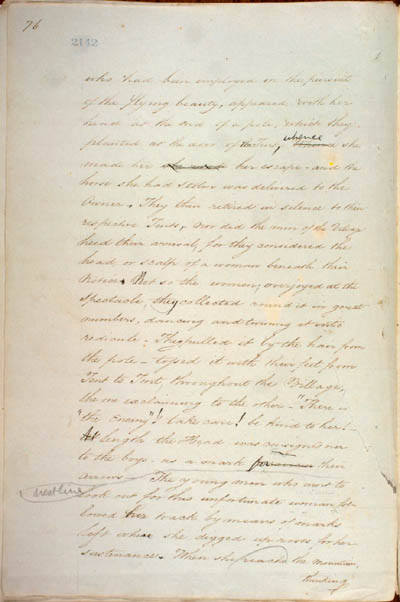 76
2142
who had been employed in the pursuit
of the flying beauty, appeared with her
head at the end of a pole, which they
planted at the door of the Tent, whence she
made her her escape - and the
horse she had stolen was delivered to the
Owner. They then retired in silence to their
respective Tents, nor did the men of the Village
heed their arrival, for they considered the
head or scalp of a woman beneath their
Notice. Not so the women, overjoyed at the
Spectacle, they collected round it in great
numbers, dancing and turning it into
ridicule; They pulled it by the hair from
the pole - tossed it with their feet from
Tent to Tent, throughout the Village,
the one exclaiming to the other - "There is
"the Enemy"! take care! be kind to her! -
At length the Head was consigned
to the boys, as a mark their
arrows - The young men who went to
next line
look out for this unfortunate woman fol-
lowed her track by means of marks
left where she digged up roots for her
sustenance. When she reached the Mountain,
thinking